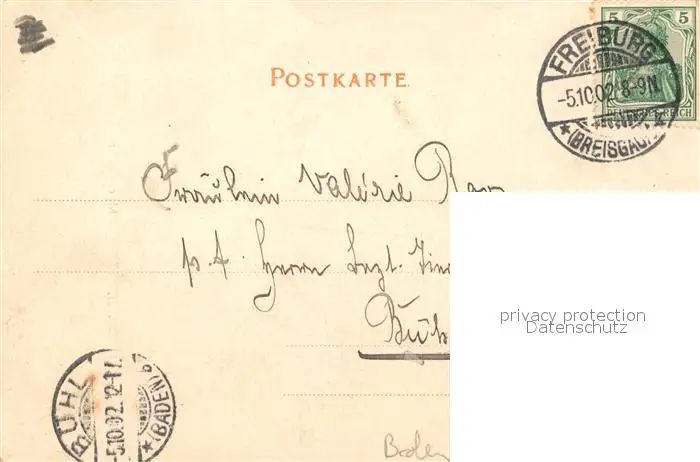 5 5
DEUTSCHES REICH
FREIBURG
-5.10.02.8-9N.
* (BREISGAU) *
POSTKARTE
Fräulein Valérie
p. A. Herrn Bezt.
privacy protection
Datenschutz
BÜHL
-5.10.02.12-1
* (BADEN)
Baden